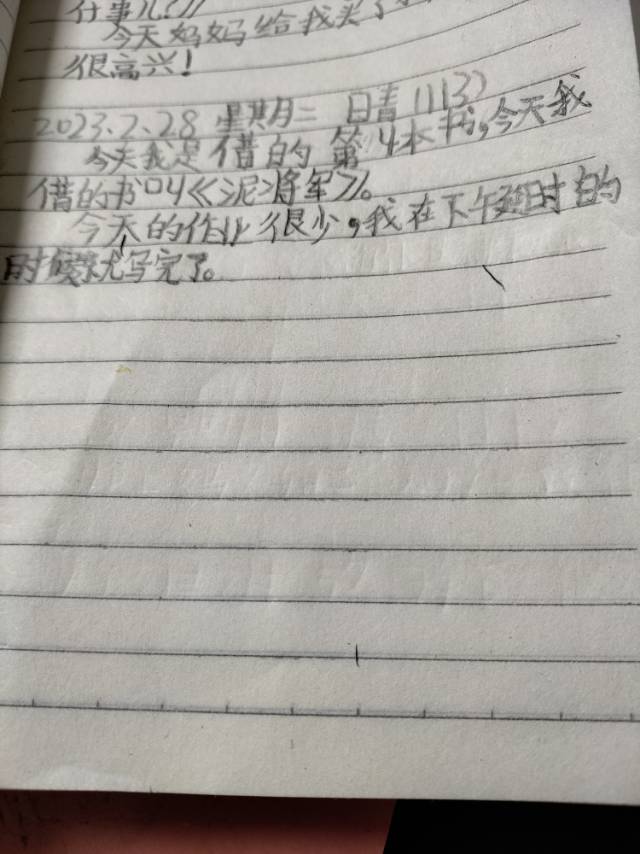 什事儿?》
今天妈妈给我买了
很高兴!
2023.2.28 星期二 日青(113)
今天我是借的第4本书,今天我
借的书叫《泥将军》。
今天的作业很少,我在下午延时的
时候就写完了。